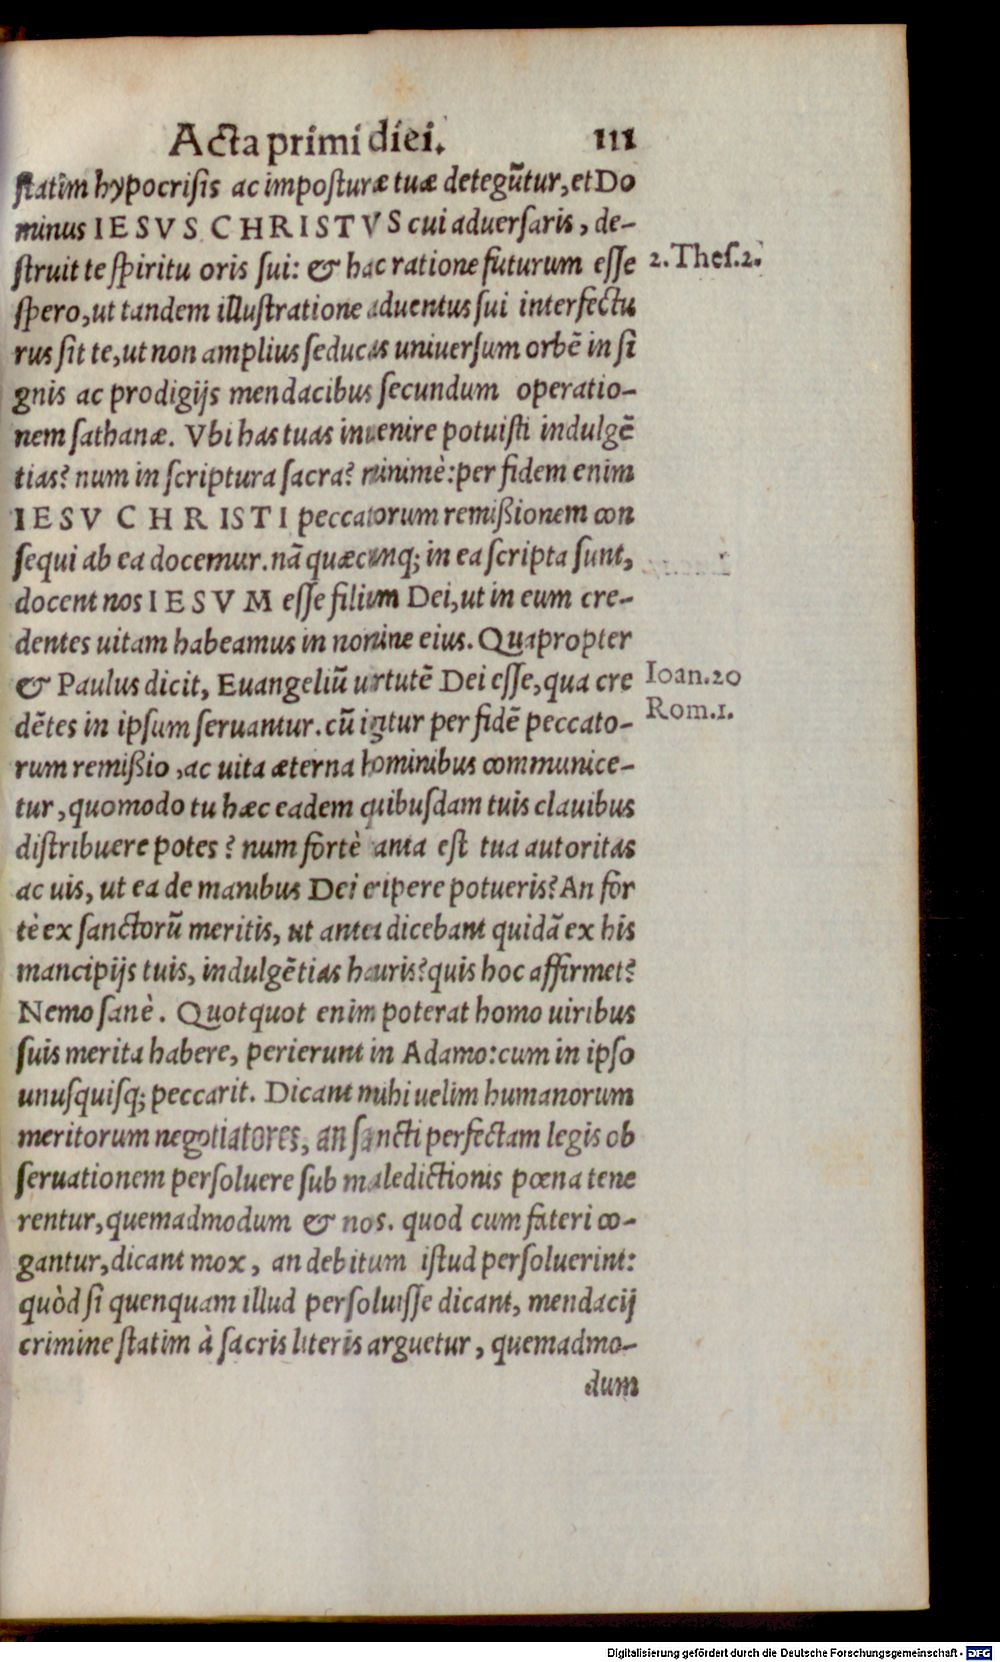 Acta primi diei. 111
ſtatim hypocriſis ac impoſturæ tuæ detegūtur, et Do
minus IESVS CHRISTVS cui aduerſaris, de-
ſtruit te ſpiritu oris ſui: & hac ratione futurum eſſe 2. Theſ. 2.
ſpero, ut tandem illuſtratione aduentus ſui interfectu
rus ſit te, ut non amplius ſeducas uniuerſum orbē in ſi
gnis ac prodigijs mendacibus ſecundum operatio-
nem ſathanæ. Vbi has tuas inuenire potuiſti indulgē
tias? num in ſcriptura ſacra? minimè: per fidem enim
IESV CHRISTI peccatorum remißionem con
ſequi ab ea docemur. nā quæcunq; in ea ſcripta ſunt,
docent nos IESVM eſſe filium Dei, ut in eum cre-
dentes uitam habeamus in nomine eius. Quapropter
& Paulus dicit, Euangeliū uirtutē Dei eſſe, qua cre Ioan. 20
dētes in ipſum ſeruantur. cū igitur per fidē peccato- Rom. 1.
rum remißio, ac uita æterna hominibus communice-
tur, quomodo tu hæc eadem quibuſdam tuis clauibus
diſtribuere potes? num fortè tanta eſt tua autoritas
ac uis, ut ea de manibus Dei eripere potueris? An for
tè ex ſanctorū meritis, ut antea dicebant quidā ex his
mancipijs tuis, indulgētias hauris? quis hoc affirmet?
Nemo ſanè. Quotquot enim poterat homo uiribus
ſuis merita habere, perierunt in Adamo: cum in ipſo
unuſquiſq; peccarit. Dicant mihi uelim humanorum
meritorum negotiatores, an ſancti perfectam legis ob
ſeruationem perſoluere ſub maledictionis pœna tene
rentur, quemadmodum & nos. quod cum fateri co-
gantur, dicant mox, an debitum iſtud perſoluerint:
quòd ſi quenquam illud perſoluiſſe dicant, mendacij
crimine ſtatim à ſacris literis arguetur, quemadmo-
dum
Digitalisierung gefördert durch die Deutsche Forschungsgemeinschaft - DFG